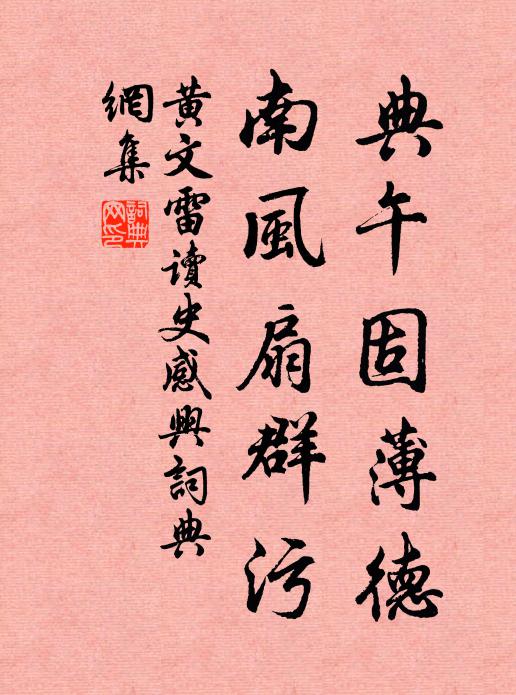 典午固薄德
南風扇群污
黄文雷讀史感興詞典
網集
詞典
网印